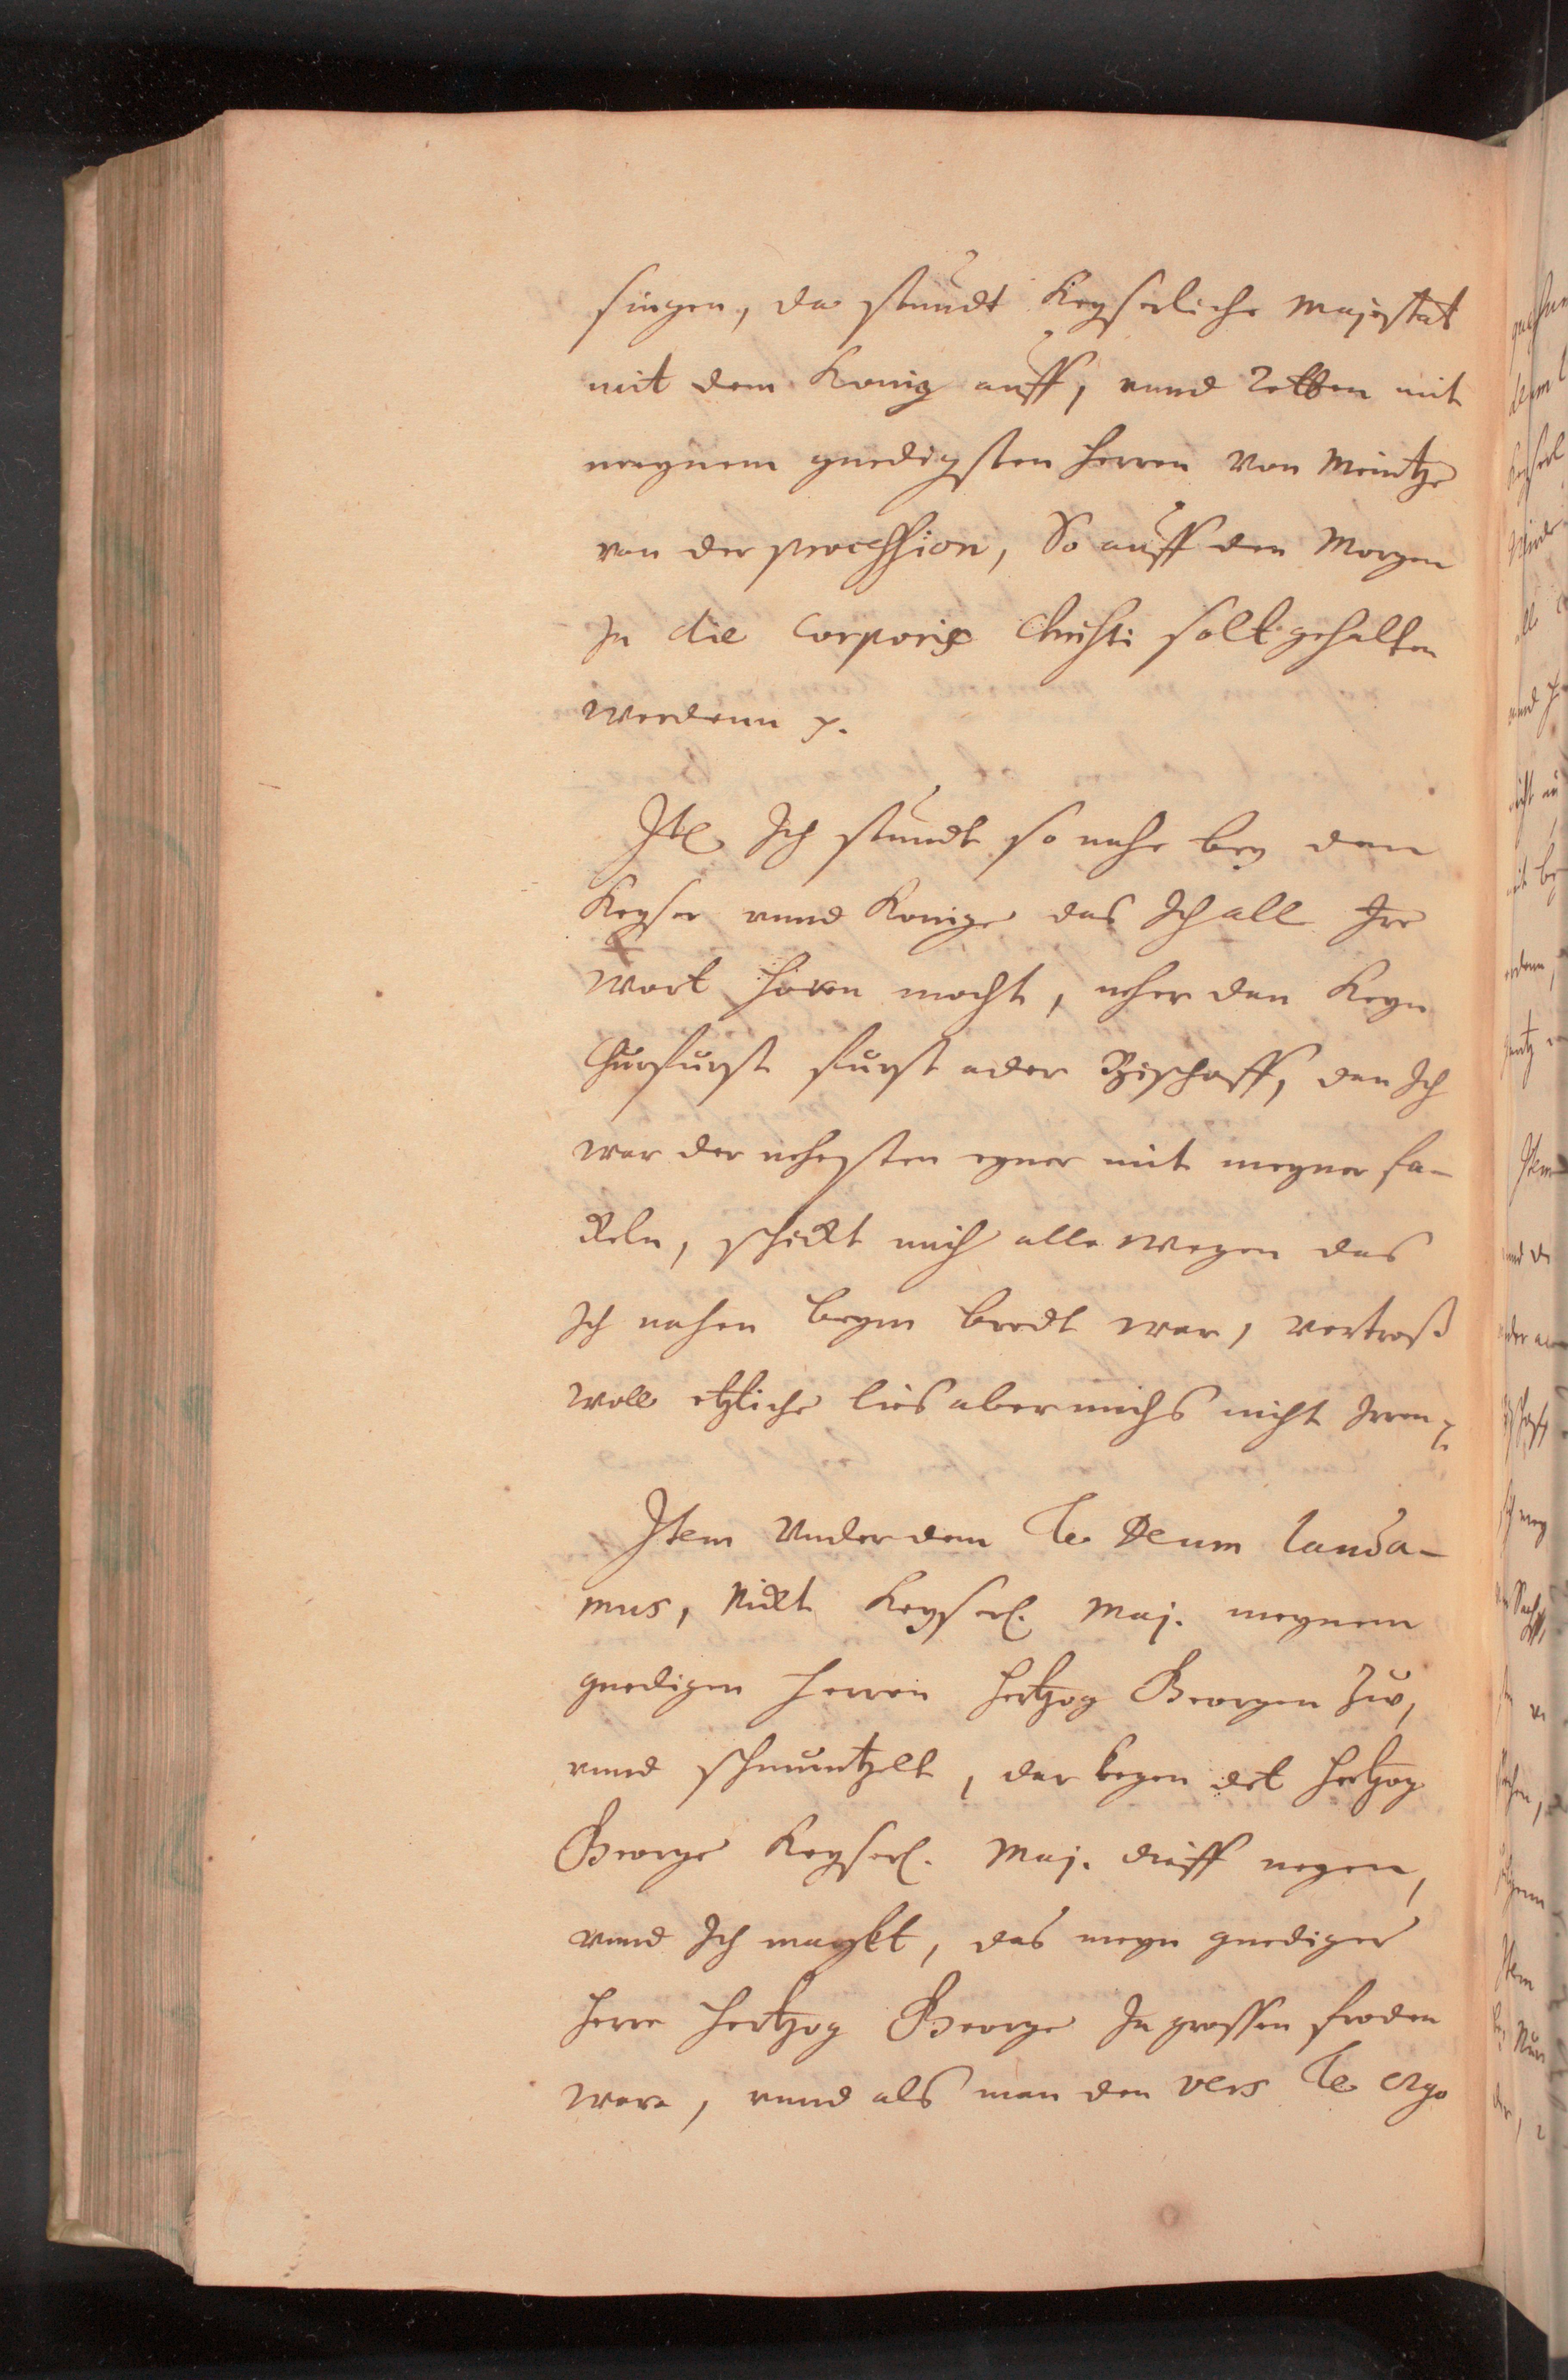 singen, da stundt Keyserliche Majestat
mit dem Konig auff, vnnd Retten mit
meynem gnedigsten Herren von Meintze
von der procession, So auff den Morgen
In die Corporis Christi solt gehalten
werdenn p.
Ite Ich stundt so nahe bey dem
Keyser vnnd Konige das Ich all Ire
wort horen mocht, neher dan Keyn
Churfurst furst ader Bischoff, den Ich
war der nehesten eyner mit meyner fa-
ckeln, schickt mich alle wegen das
Ich nahen beym bredt war, vortross
woll etzliche lies aber michs nicht Irren p.
Item vnder dem Te Deum lauda-
mus, Nickt Keyserl. Maj. meynem
gnedigen Herren Hertzog Georgen zu,
vnnd schmuntzelt, dar kegen det Hertzog
George Keyserl. Maj. dieff negen,
vnnd Ich marckt, das meyn gnediger
Herre Hertzog George In grossen froden
ware, vnnd als man den vers Te ergo